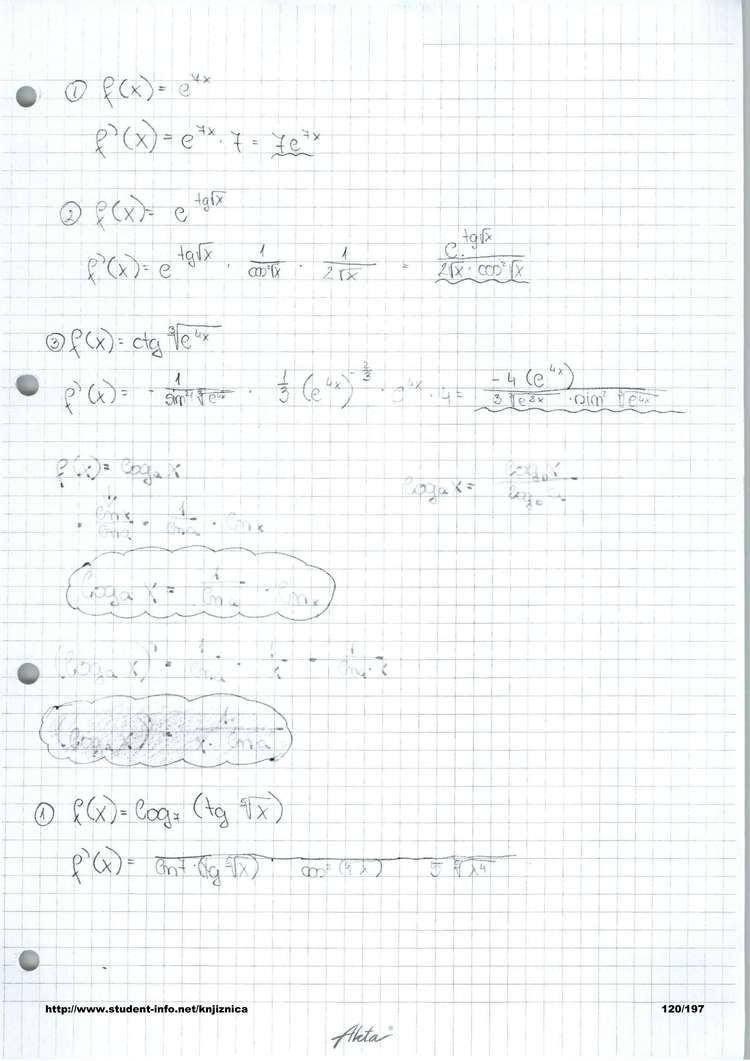 ① f(x) = e^7x
f'(x) = e^7x · 7 = 7e^7x
② f(x) = e^tg√x
f'(x) = e^tg√x · 1/cos²√x · 1/2√x = e^tg√x / 2√x · cos²√x
③ f(x) = ctg ∛e^4x
f'(x) = - 1/sin² ∛e^4x · 1/3 (e^4x)^-2/3 · e^4x · 4 = -4 (e^4x) / 3 ∛e^8x · sin² ∛e^4x
f(x) = log_a x log_a x = log_b x / log_b a
= ln x / ln a = 1/ln a · ln x
log_a x = 1/ln a · ln x
(log_a x)' = 1/ln a · 1/x = 1/ln a · x
(log_a x)' = 1/x · ln a
① f(x) = log₇ (tg ⁵√x)
f'(x) = ln7 · (tg ⁵√x) cos² 5 ⁵√x⁴
http://www.student-info.net/knjiznica 120/197
Akta